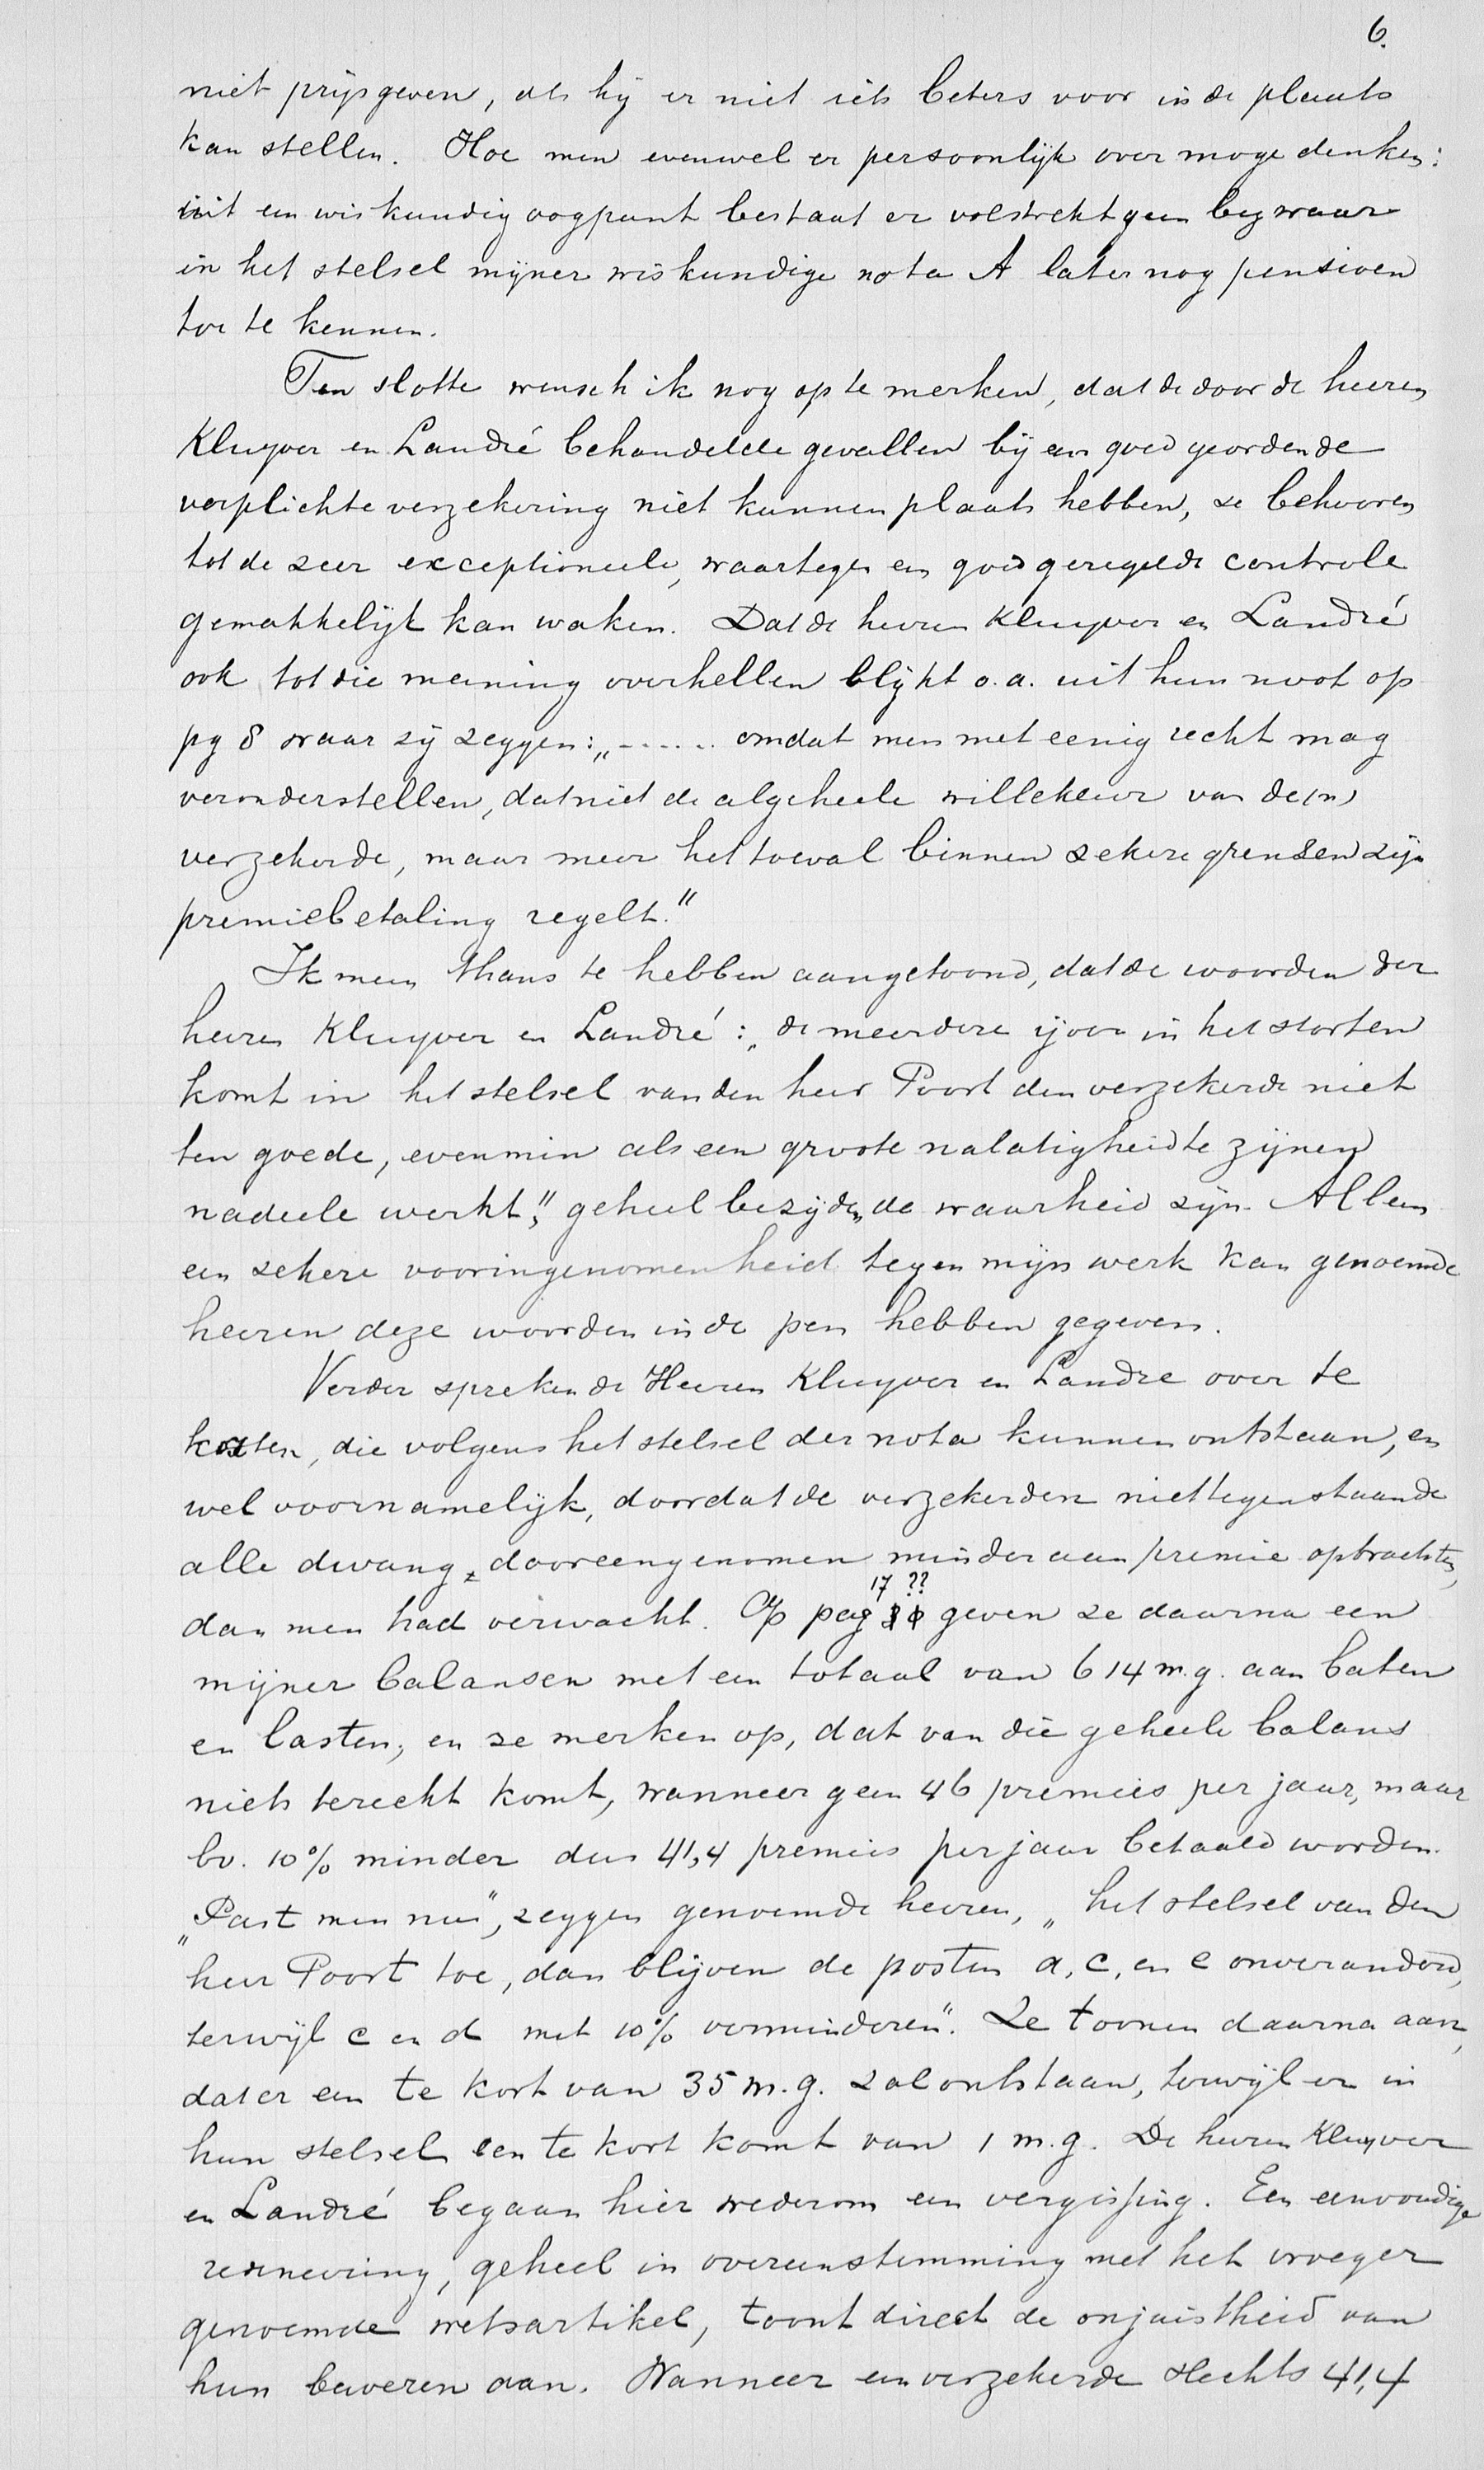 6.
niet prijsgeven, als hij er niet iets beters voor in de plaats
kan stellen. Hoe men evenwel er persoonlijk over moge denken:
uit een wiskundig oogpunt bestaat er volstrekt geen bezwaar
in het stelsel mijner wiskundige nota A later nog pensioen
toe te kennen.
Ten slotte wensch ik nog op te merken, dat de door de heeren
Kluyver en Landré behandelde gevallen bij een goed geordende
verplichte verzekering niet kunnen plaats hebben, ze behooren
tot de zeer exceptioneele, waartegen een goed geregelde controle
gemakkelijk kan waken. Dat de heeren Kluyver en Landré
ook tot die meening overhellen blijkt o.a. uit hun noot op
pg 8 waar zij zeggen: „...... omdat men met eenig recht mag
veronderstellen, dat niet de algeheele willekeur van de(n)
verzekerde, maar meer het toeval binnen zekere grenzen zijn
premiebetaling regelt."
Ik meen thans te hebben aangetoond, dat de woorden der
heeren Kluyver en Landré: „de meerdere ijver in het storten
komt in het stelsel van den heer Poort den verzekerde niet
ten goede, evenmin als een groote nalatigheid te zijnen
nadeele werkt", geheel bezijden de waarheid zijn. Alleen
een zekere vooringenomenheid tegen mijn werk kan genoemde
heeren deze woorden in de pen hebben gegeven.
Verder spreken de Heeren Kluyver en Landre over te
korten, die volgens het stelsel der nota kunnen ontstaan, en
wel voornamelijk, doordat de verzekerden niettegenstaande
alle dwang, dooreengenomen minder aan premie opbrachten,
dan men had verwacht. Op pag 17 ?? geven ze daarna een
mijner balansen met een totaal van 614 m.g. aan baten
en lasten; en ze merken op, dat van die geheele balans
niets terecht komt, wanneer geen 46 premies per jaar, maar
bv. 10% minder dus 41,4 premies per jaar betaald worden.
„Past men nu", zeggen genoemde heeren, „het stelsel van den
heer Poort toe, dan blijven de posten a, c, en e onveranderd,
terwijl c en d met 10% verminderen". Ze toonen daarna aan,
dat er een te kort van 35 m.g. zal ontstaan, terwijl er in
hun stelsel een te kort komt van 1 m.g. De heeren Kluyver
en Landré begaan hier wederom een vergissing. Een eenvoudige
redeneering, geheel in overeenstemming met het vroeger
genoemde wetsartikel, toont direct de onjuistheid van
hun beweren aan. Wanneer een verzekerde slechts 41,4